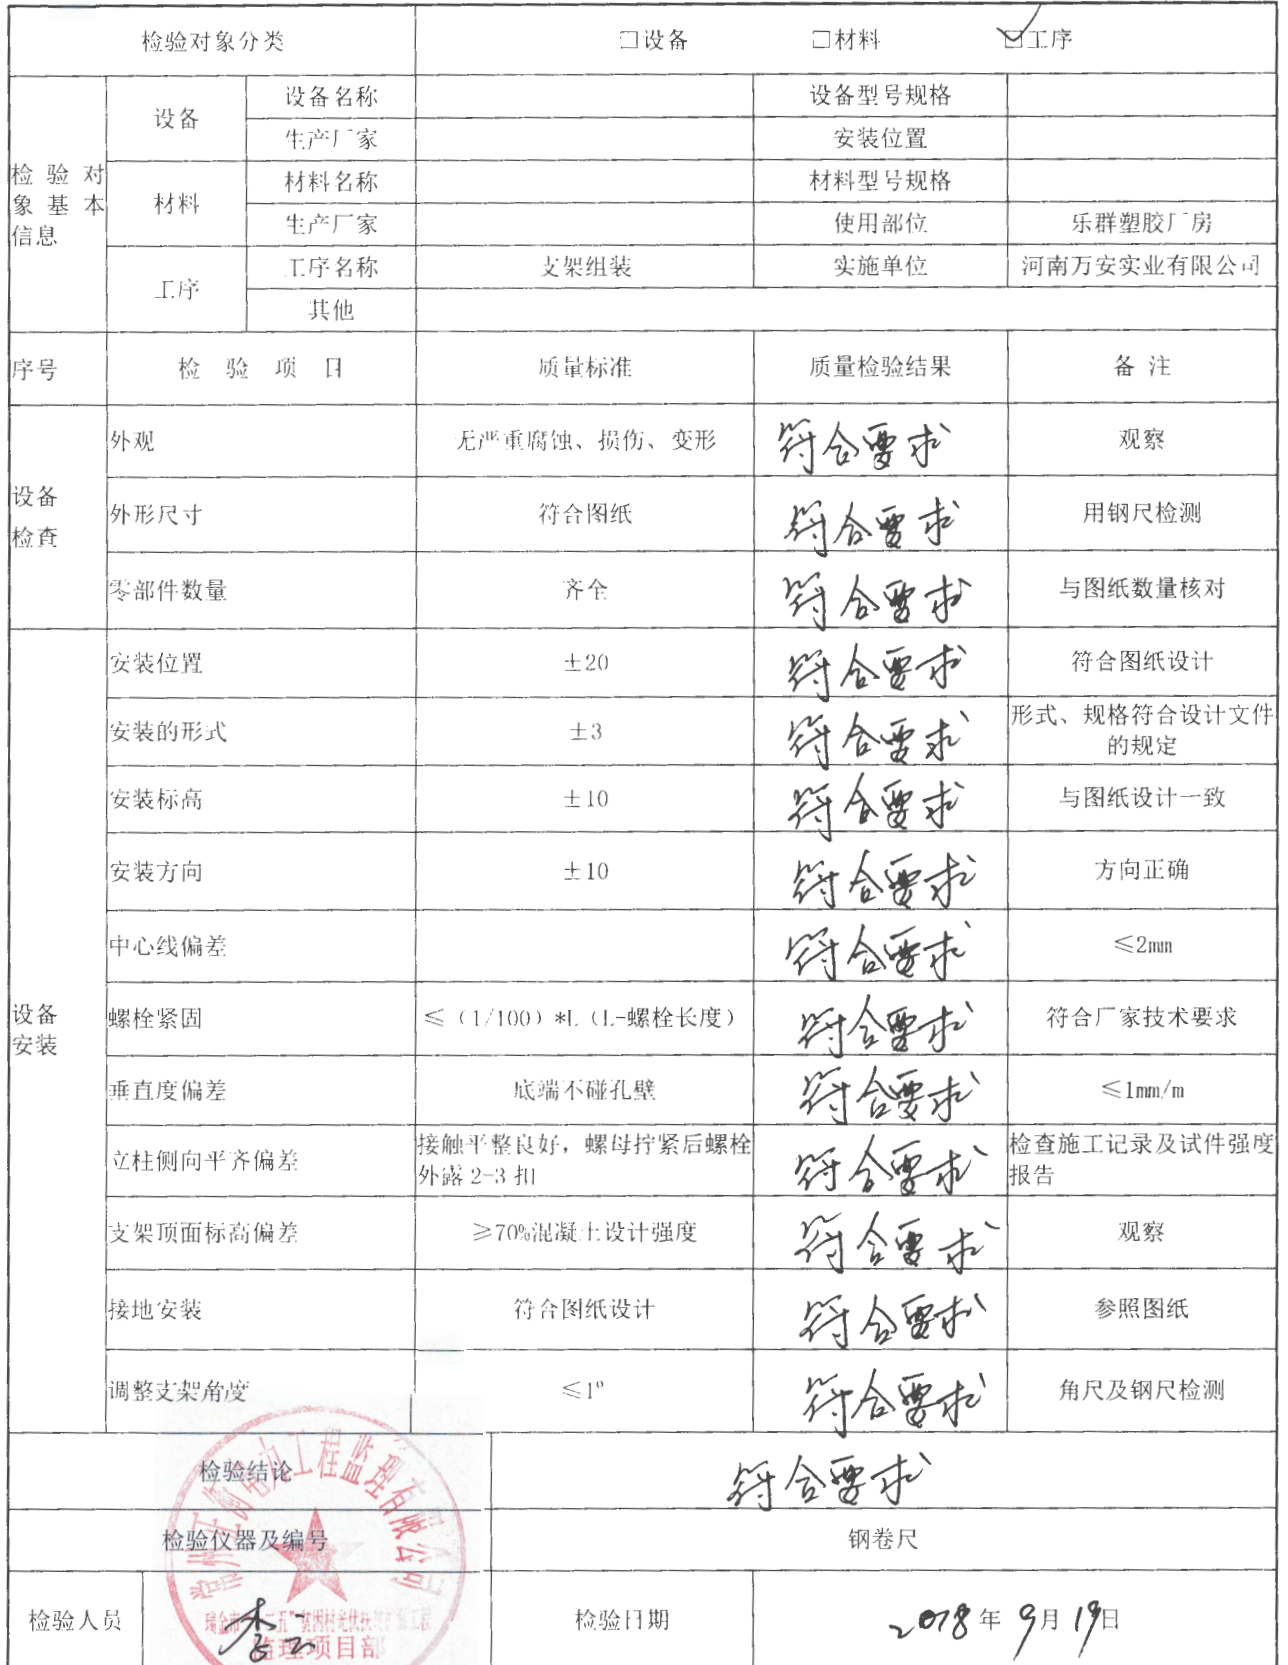 检验对象分类 □设备 □材料 ☑工序
检验对象基本信息 设备 设备名称 设备型号规格
生产厂家 安装位置
材料 材料名称 材料型号规格
生产厂家 使用部位 乐群塑胶厂房
工序 工序名称 支架组装 实施单位 河南万安实业有限公司
其他
序号 检验项目 质量标准 质量检验结果 备注
设备检查 外观 无严重腐蚀、损伤、变形 符合要求 观察
外形尺寸 符合图纸 符合要求 用钢尺检测
零部件数量 齐全 符合要求 与图纸数量核对
设备安装 安装位置 ±20 符合要求 符合图纸设计
安装的形式 ±3 符合要求 形式、规格符合设计文件的规定
安装标高 ±10 符合要求 与图纸设计一致
安装方向 ±10 符合要求 方向正确
中心线偏差 符合要求 ≤2mm
螺栓紧固 ≤（1/100）*L（L-螺栓长度） 符合要求 符合厂家技术要求
垂直度偏差 底端不碰孔壁 符合要求 ≤1mm/m
立柱侧向平齐偏差 接触平整良好，螺母拧紧后螺栓外露2-3扣 符合要求 检查施工记录及试件强度报告
支架顶面标高偏差 ≥70%混凝土设计强度 符合要求 观察
接地安装 符合图纸设计 符合要求 参照图纸
调整支架角度 ≤1° 符合要求 角尺及钢尺检测
检验结论 符合要求
检验仪器及编号 钢卷尺
检验人员 检验日期 2018年9月19日
工程监理有限公司
监理项目部